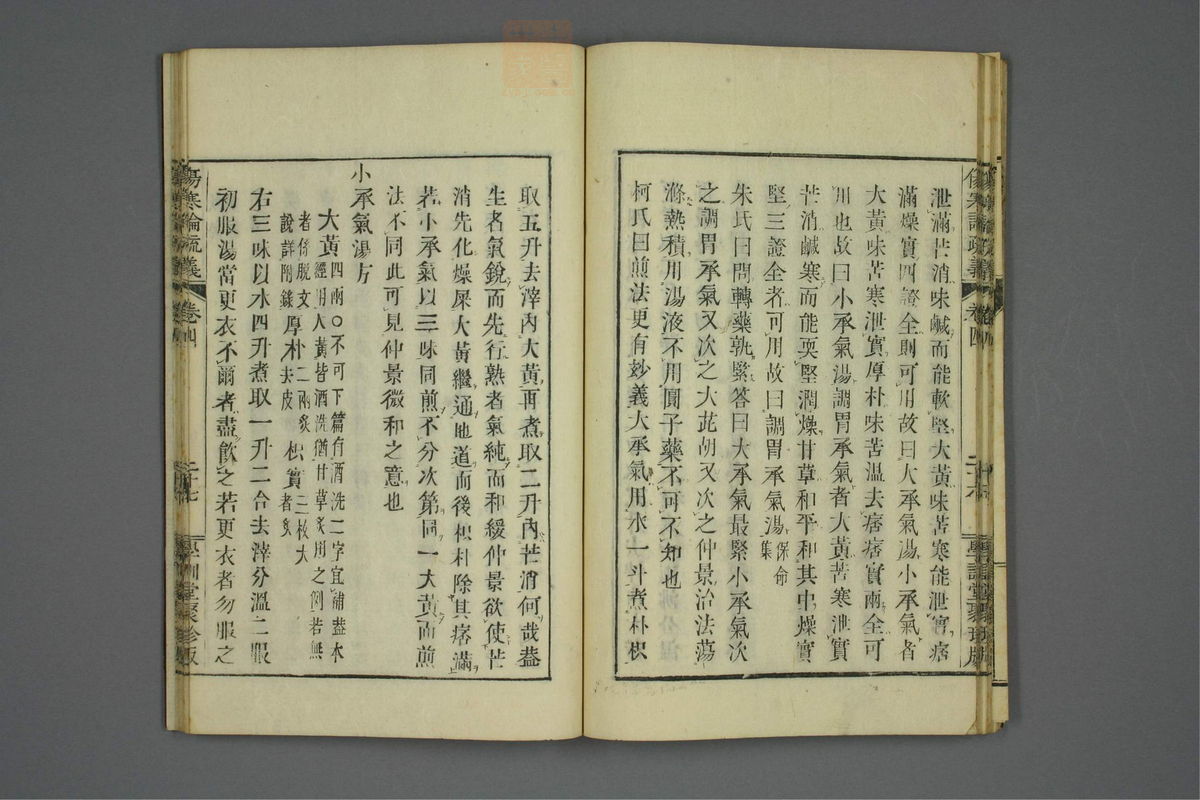 泄滿芒消味鹹而能軟堅大黃味苦寒能泄實痞
滿燥實四證全則可用故曰大承氣湯小承氣者
大黃味苦寒泄實厚朴味苦溫去痞痞實兩全可
用也故曰小承氣湯調胃承氣者大黃苦寒泄實
芒消鹹寒而能耎堅潤燥甘草和平和其中燥實
堅三證全者可用故曰調胃承氣湯保命集
朱氏曰問轉藥孰緊答曰大承氣最緊小承氣次
之調胃承氣又次之大茈胡又次之仲景治法蕩
滌熱積用湯液不用圓子藥不可不知也
柯氏曰煎法更有妙義大承氣用水一斗煮朴枳
傷寒論疏義
卷四
二十六
學訓堂聚珍版
取五升去滓內大黃再煮取二升內芒消何哉葢
生者氣銳而先行熟者氣純而和緩仲景欲使芒
消先化燥屎大黃繼通地道而後枳朴除其痞滿
若小承氣以三味同煎不分次第同一大黃而煎
法不同此可見仲景微和之意也
小承氣湯方
大黃四兩○不可下篇有酒洗二字宜補葢本
經用大黃皆酒洗猶甘草炙用之例若無
者係脫文
說詳附錄厚朴二兩炙
去皮枳實三枚大
者炙
右三味以水四升煮取一升二合去滓分溫二服
初服湯當更衣不爾者盡飲之若更衣者勿服之
傷寒論疏義
卷四
二十七
學訓堂聚珍版